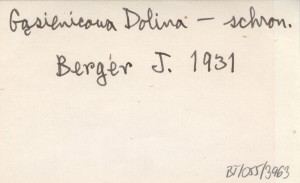 Gąsienicowa Dolina – schron.
Bergér J. 1931
BT/055/3963